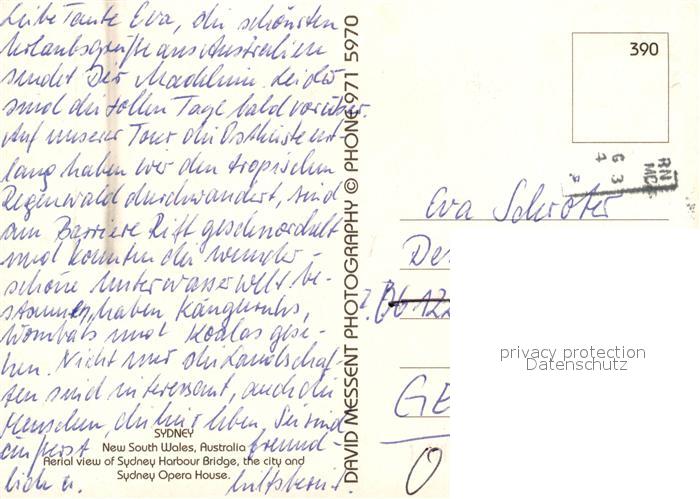 Liebe Tante Eva, die schönsten
Urlaubsgrüße aus Australien
sendet Dir Madelein. Leider
sind die tollen Tage bald vorüber.
Auf unserer Tour die Ostküste ent-
lang haben wir den tropischen
Regenwald durchwandert, sind
am Barriere Riff geschnorchelt
und konnten die wunder-
schöne Unterwasserwelt be-
staunen, haben Kängeruhs,
Wombats und Koalas gese-
hen. Nicht nur die Landschaf-
ten sind interessant, auch die
Menschen, die hier leben. Sie sind
äußerst freund-
lich u. hilfsbereit.
SYDNEY
New South Wales, Australia
Aerial view of Sydney Harbour Bridge, the city and
Sydney Opera House.
DAVID MESSENT PHOTOGRAPHY © PHONE 971 5970
390
Eva Schröter
De
06122
GE
O
privacy protection
Datenschutz